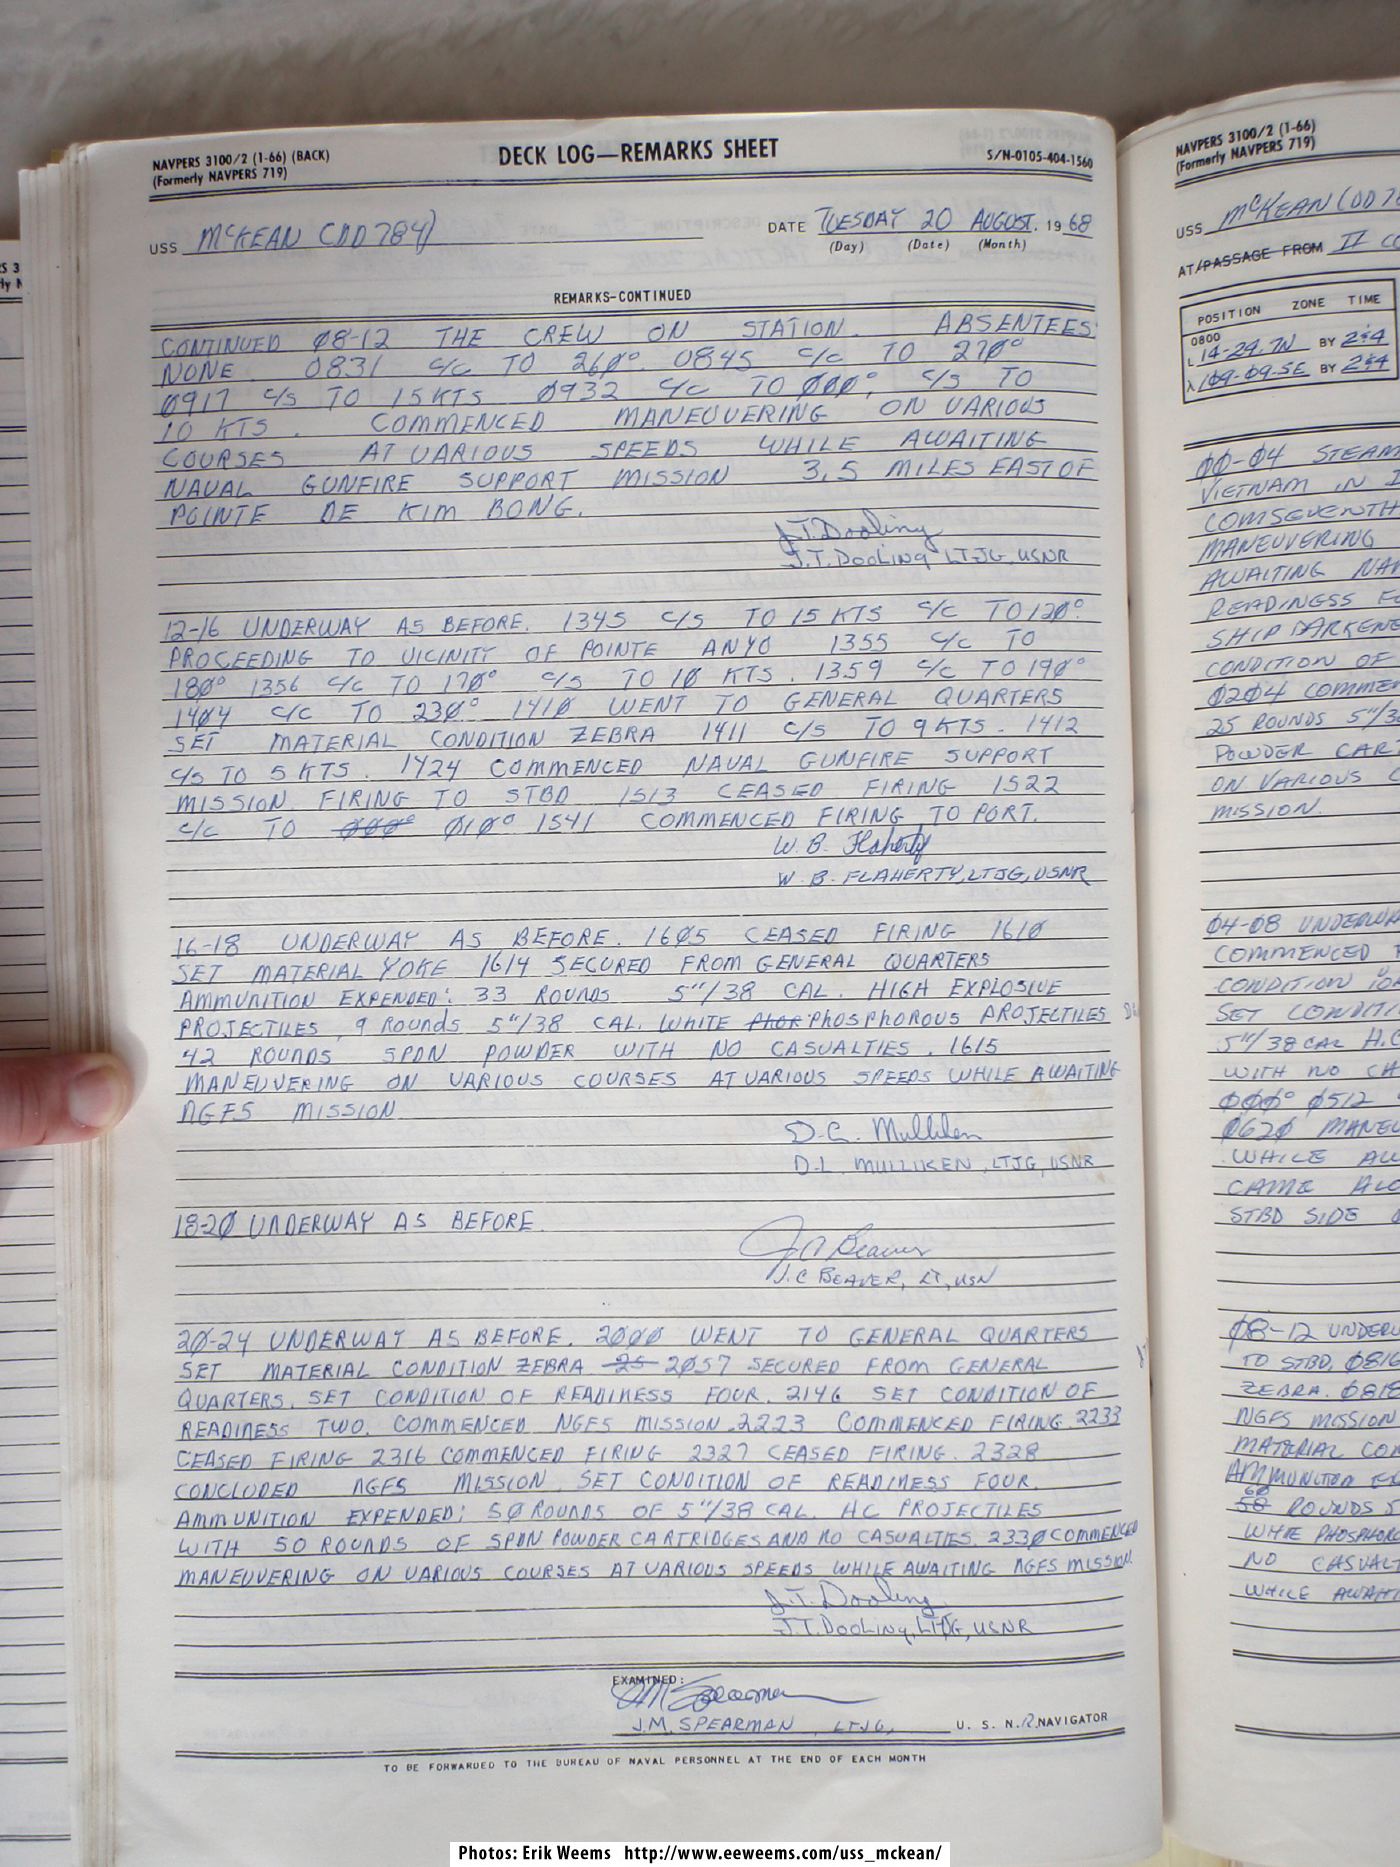 NAVPERS 3100/2 (1-66) (BACK)
(Formerly NAVPERS 719)
DECK LOG—REMARKS SHEET
S/N-0105-404-1560
USS McKEAN (DD 784)
DATE TUESDAY 20 AUGUST, 19 68
(Day) (Date) (Month)
REMARKS-CONTINUED
CONTINUED Ø8-12 THE CREW ON STATION. ABSENTEES:
NONE. 0831 c/c TO 26Ø° 0845 c/c TO 27Ø°
Ø917 c/s TO 15 KTS Ø932 c/c TO ØØØ°, c/s TO
1Ø KTS. COMMENCED MANEUVERING ON VARIOUS
COURSES AT VARIOUS SPEEDS WHILE AWAITING
NAVAL GUNFIRE SUPPORT MISSION 3.5 MILES EAST OF
POINTE DE KIM BONG.
J.T. Dooling
J.T. Dooling LTJG, USNR
12-16 UNDERWAY AS BEFORE. 1345 c/s TO 15 KTS c/c TO 12Ø°
PROCEEDING TO VICINITY OF POINTE ANYO 1355 c/c TO
18Ø° 1356 c/c TO 17Ø° c/s TO 1Ø KTS. 1359 c/c TO 19Ø°
14Ø4 c/c TO 23Ø° 141Ø WENT TO GENERAL QUARTERS
SET MATERIAL CONDITION ZEBRA 1411 c/s TO 9 KTS. 1412
c/s TO 5 KTS. 1424 COMMENCED NAVAL GUNFIRE SUPPORT
MISSION FIRING TO STBD 1513 CEASED FIRING 1522
c/c TO ØØØ° Ø1Ø° 1541 COMMENCED FIRING TO PORT.
W. B. Flaherty
W. B. FLAHERTY, LTJG, USNR
16-18 UNDERWAY AS BEFORE. 16Ø5 CEASED FIRING 161Ø
SET MATERIAL YOKE 1614 SECURED FROM GENERAL QUARTERS
AMMUNITION EXPENDED: 33 ROUNDS 5"/38 CAL. HIGH EXPLOSIVE
PROJECTILES, 9 ROUNDS 5"/38 CAL. WHITE PHOR PHOSPHOROUS PROJECTILES
42 ROUNDS SPDN POWDER WITH NO CASUALTIES. 1615
MANEUVERING ON VARIOUS COURSES AT VARIOUS SPEEDS WHILE AWAITING
NGFS MISSION
D. L. MULLIKEN, LTJG, USNR
18-2Ø UNDERWAY AS BEFORE.
J C Beaver
J. C BEAVER, LT, USN
2Ø-24 UNDERWAY AS BEFORE. 2ØØØ WENT TO GENERAL QUARTERS
SET MATERIAL CONDITION ZEBRA 25 2Ø57 SECURED FROM GENERAL
QUARTERS. SET CONDITION OF READINESS FOUR. 2146 SET CONDITION OF
READINESS TWO. COMMENCED NGFS MISSION. 2223 COMMENCED FIRING. 2233
CEASED FIRING 2316 COMMENCED FIRING 2327 CEASED FIRING. 2328
CONCLUDED NGFS MISSION. SET CONDITION OF READINESS FOUR.
AMMUNITION EXPENDED: 5Ø ROUNDS OF 5"/38 CAL. HC PROJECTILES
WITH 50 ROUNDS OF SPDN POWDER CARTRIDGES AND NO CASUALTIES. 233Ø COMMENCED
MANEUVERING ON VARIOUS COURSES AT VARIOUS SPEEDS WHILE AWAITING NGFS MISSION.
J.T. Dooling
J.T. Dooling, LTJG, USNR
EXAMINED:
JM Spearman
J.M. SPEARMAN, LTJG, U. S. N. R. NAVIGATOR
TO BE FORWARDED TO THE BUREAU OF NAVAL PERSONNEL AT THE END OF EACH MONTH
NAVPERS 3100/2 (1-66)
(Formerly NAVPERS 719)
USS McKEAN (DD 78
AT/PASSAGE FROM II CO
POSITION ZONE TIME
0800
L 14-29.7N BY 2&4
λ 109-09.5E BY 2&4
ØØ-Ø4 STEAM
VIETNAM IN
COMSEVENTH
MANEUVERING
AWAITING NA
READINESS F
SHIP DARKENE
CONDITION OF
Ø2Ø4 COMME
25 ROUNDS 5"/3
POWDER CAR
ON VARIOUS C
MISSION.
Ø4-Ø8 UNDERW
COMMENCED
CONDITION
SET CONDIT
5"/38 CAL H.C
WITH NO CA
ØØØ° Ø512
Ø62Ø MANEU
WHILE AW
CAME ALO
STBD SIDE
Ø8-12 UNDER
TO STBD, Ø816
ZEBRA. Ø818
NGFS MISSION
MATERIAL CO
AMMUNITION E
60
58 ROUNDS 5
WHITE PHOSPHOR
NO CASUALT
WHILE AWAIT
Photos: Erik Weems http://www.eeweems.com/uss_mckean/